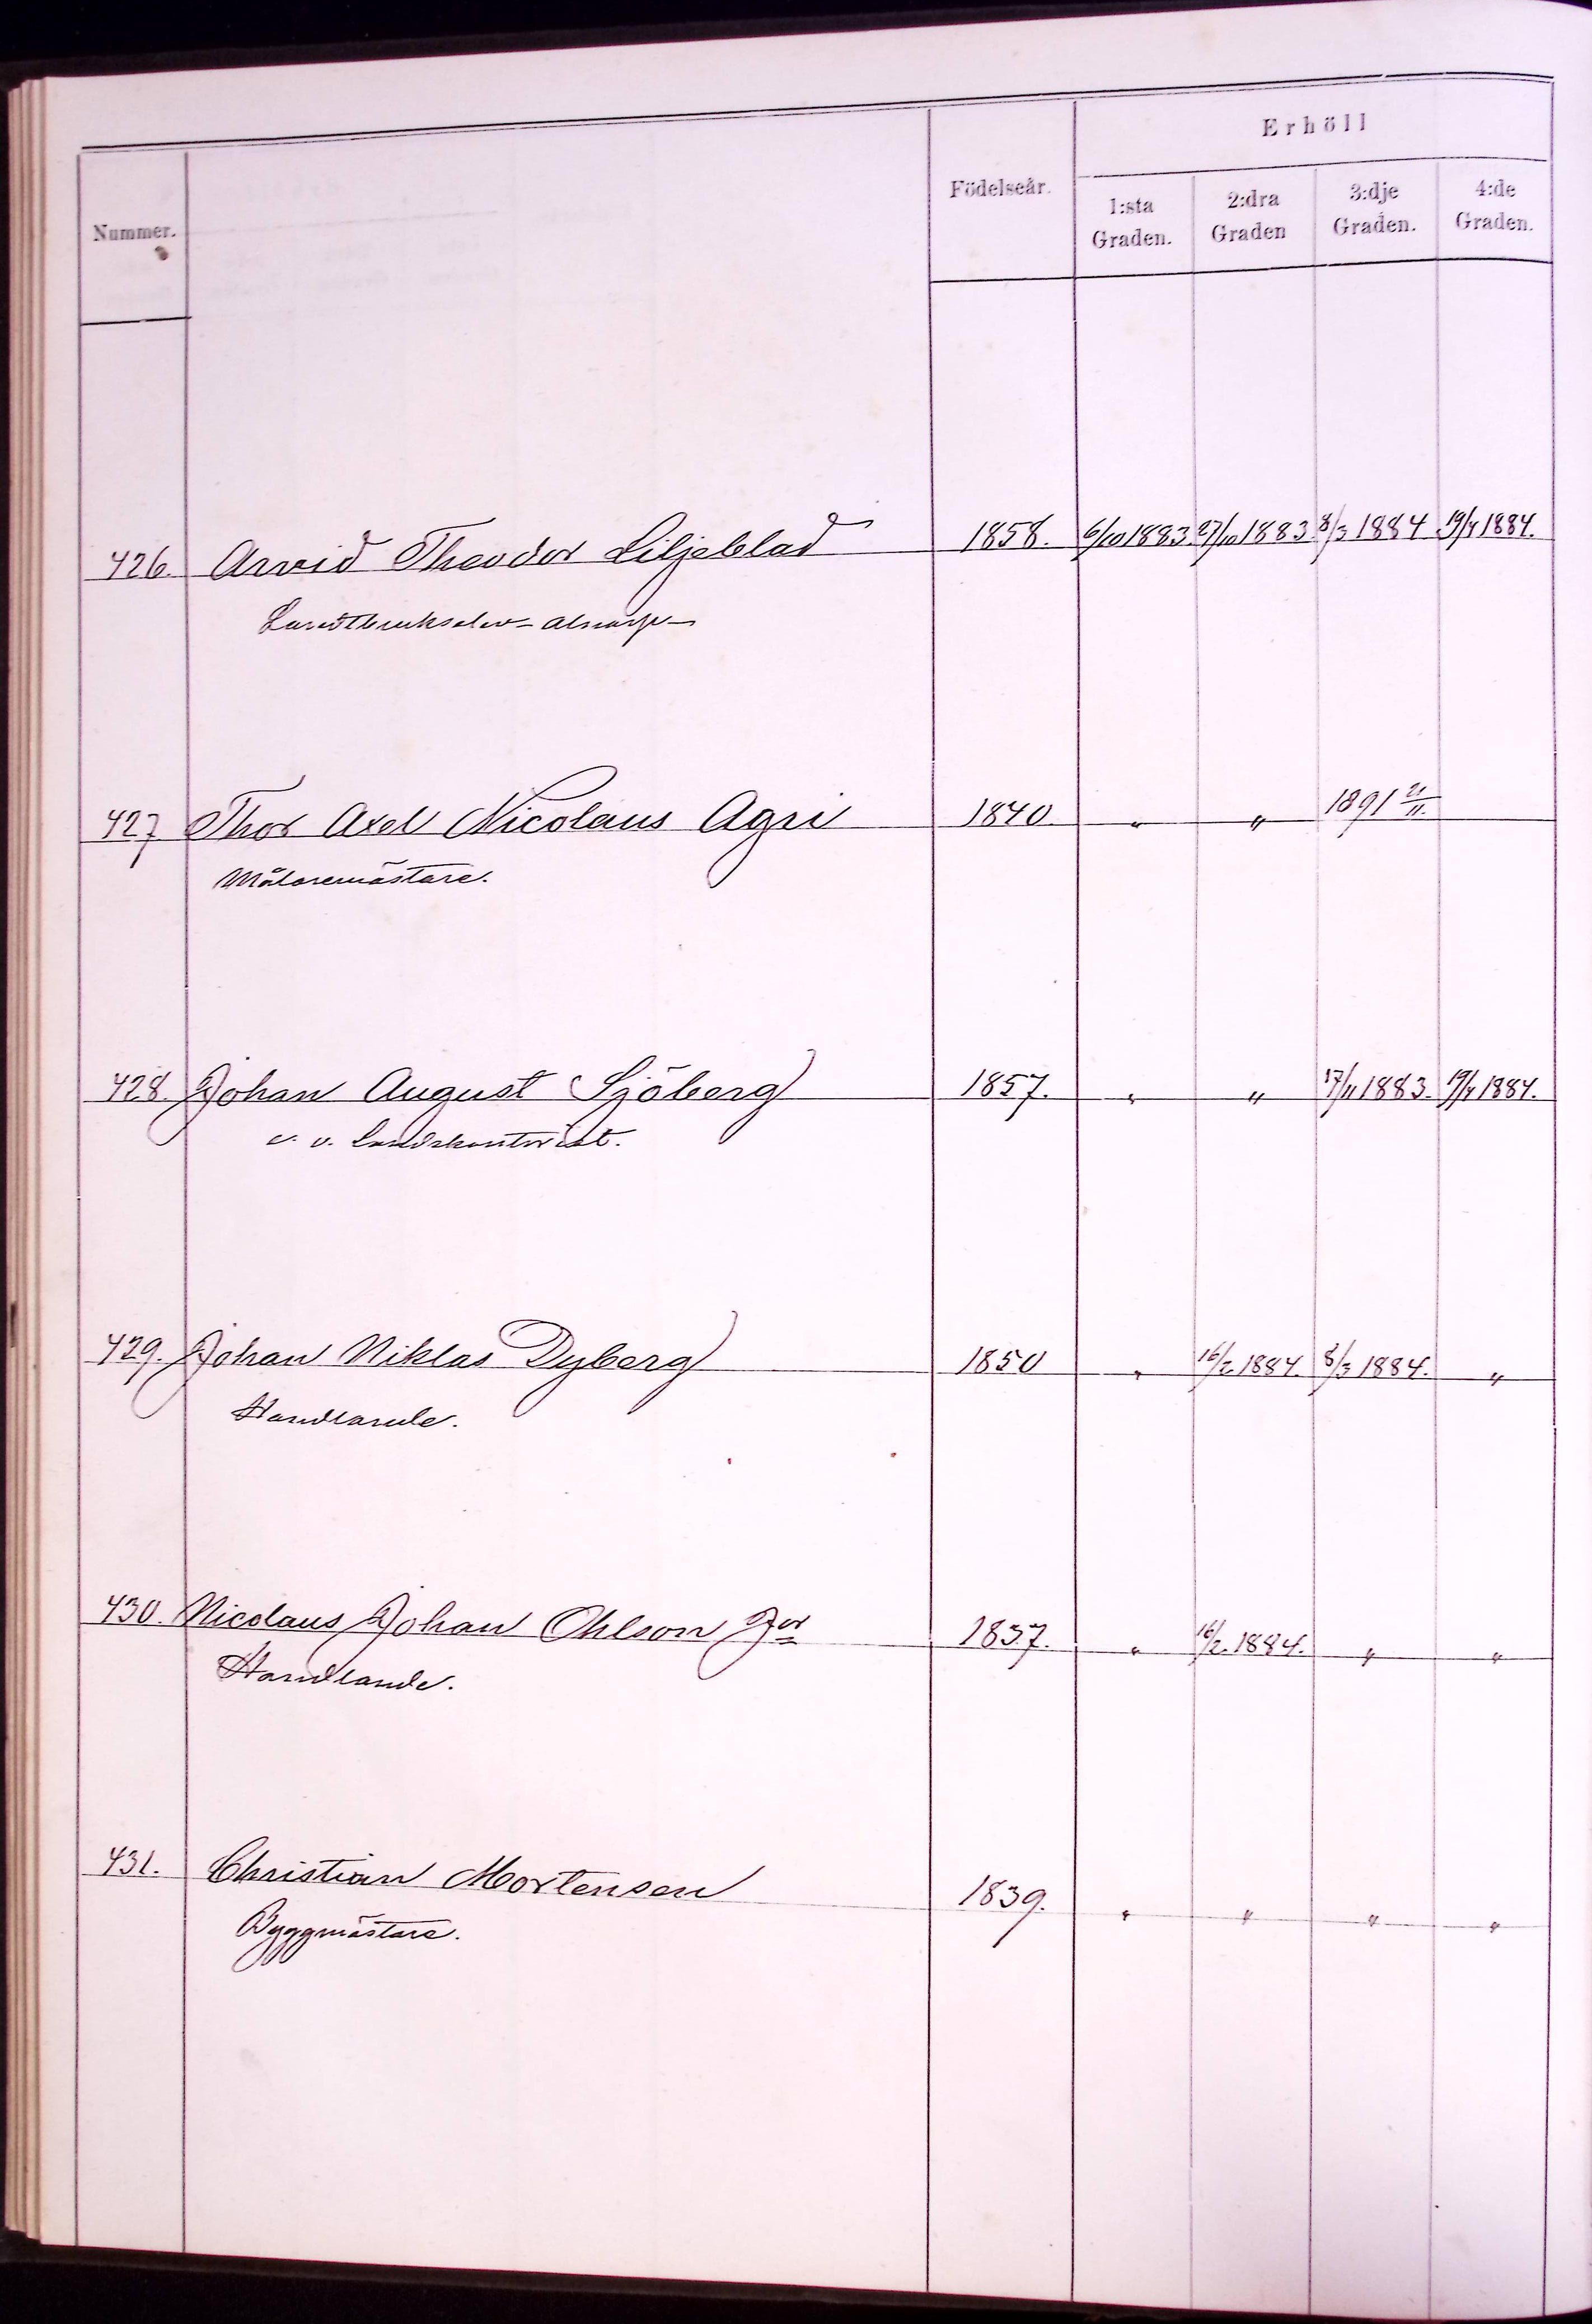 Erhöll
Nummer. Födelseår. 1:sta Graden. 2:dra Graden 3:dje Graden. 4:de Graden.
426. Arvid Theodor Liljeblad 1858. 6/10 1883. 27/10 1883. 8/3 1884 19/4 1884.
Landtbrukselev - Alnarp -
427 Thor Axel Nicolaus Agri 1840 " " 1891 21/11.
Målaremästare.
428. Johan August Sjöberg 1857. " " 17/11 1883. 19/4 1884.
e. o. Landskontorist.
429. Johan Niklas Dyberg 1850 " 16/2 1884. 8/3 1884. "
Handlande.
430. Nicolaus Johan Ohlson Jor 1857. " 16/2 1884. " "
Handlande.
431. Christian Mortensen 1839. " " " "
Byggmästare.